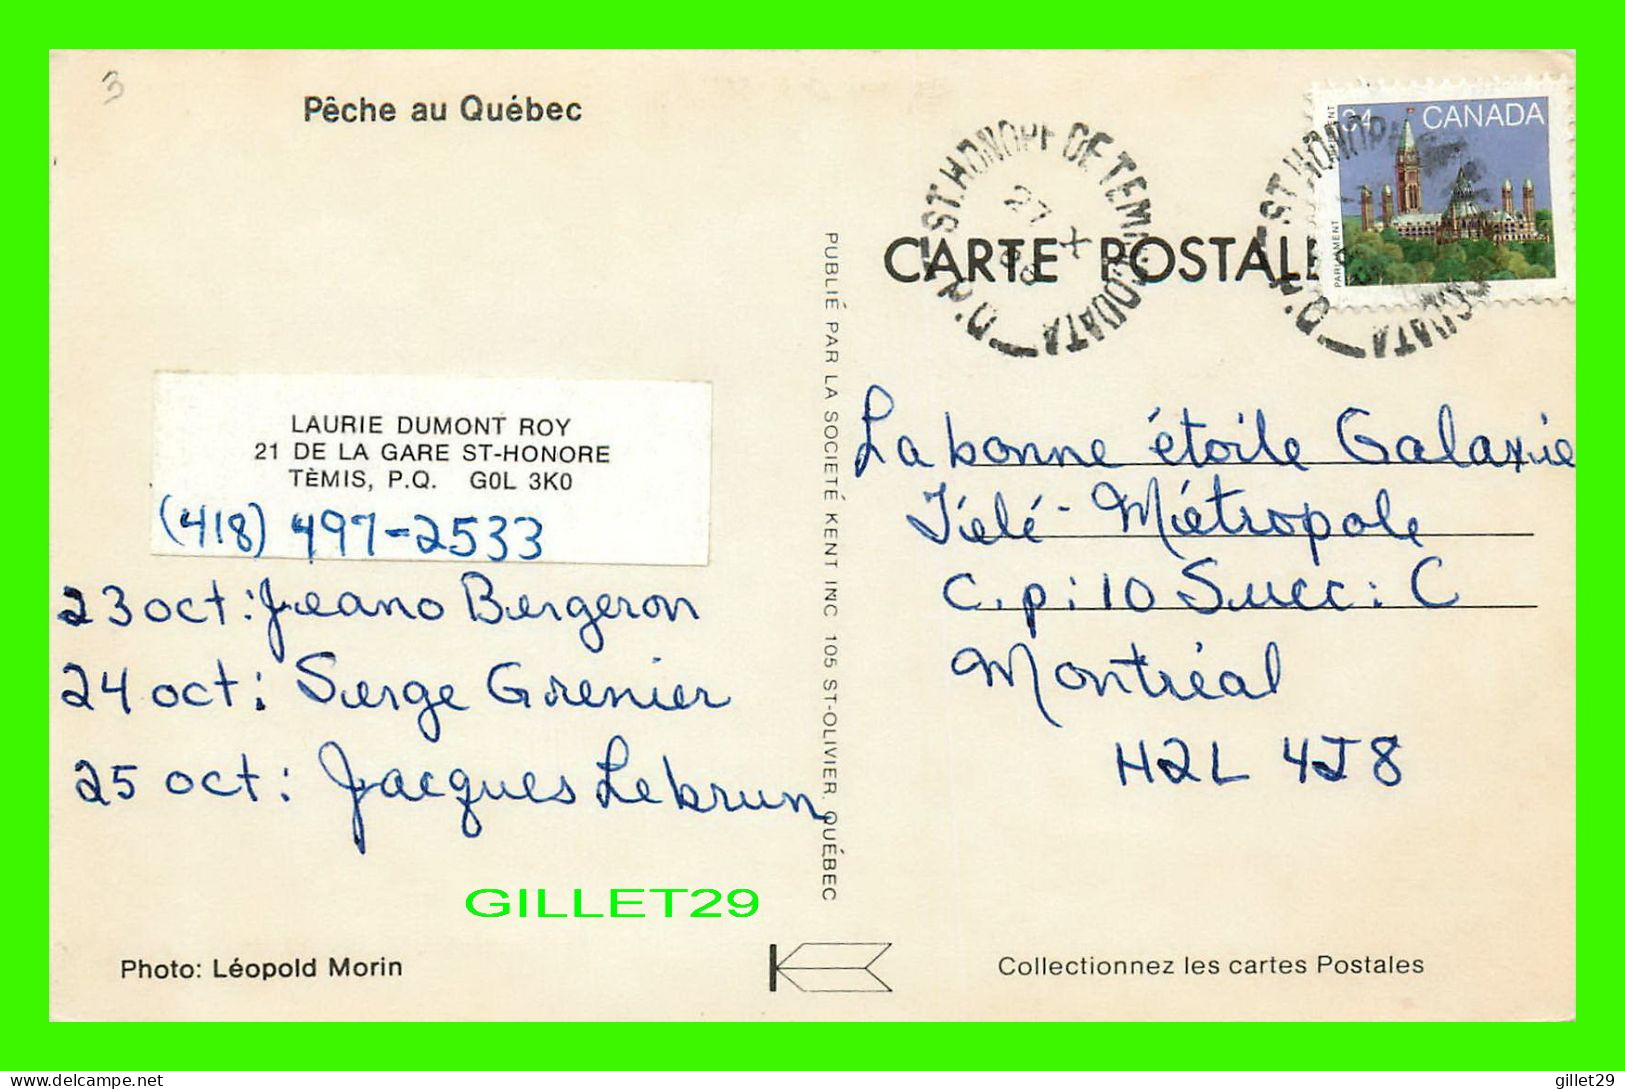 3
Pêche au Québec
ST.HONORE DE TEMISCOUATA
P.Q.
27
X
CARTE POSTALE
34 CANADA
PARLIAMENT
PARLEMENT
PUBLIÉ PAR LA SOCIETÉ KENT INC 105 ST-OLIVIER. QUÉBEC
LAURIE DUMONT ROY
21 DE LA GARE ST-HONORE
TÈMIS, P.Q. G0L 3K0
(418) 497-2533
23 oct: Jeano Bergeron
24 oct: Serge Grenier
25 oct: Jacques Lebrun
La bonne étoile Galaxie
Télé-Métropole
C.p: 10 Succ: C
Montréal
H2L 4J8
GILLET29
Photo: Léopold Morin
Collectionnez les cartes Postales
delcampe.net
gillet29